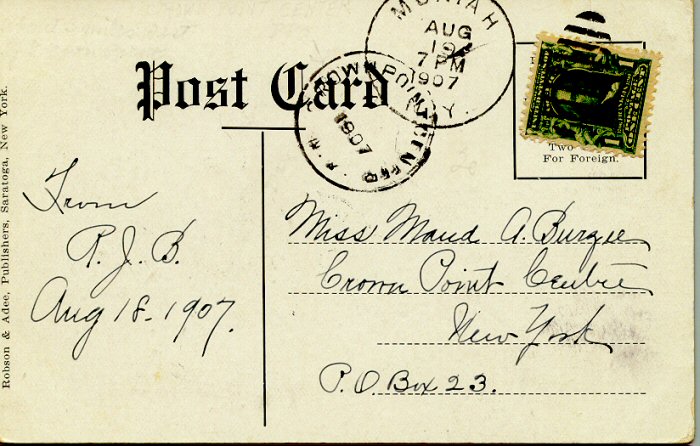 MORIAH
AUG
19
7 PM
1907
N.Y.
Post Card
CROWN POINT CENTER
1907
Two
For Foreign.
From
R. J. B.
Aug 18-1907.
Miss Maud A. Burgee
Crown Point Centre
New York
P.O. Box 23.
Robson & Adee, Publishers, Saratoga, New York.